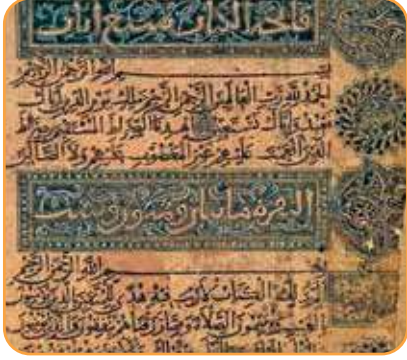 فاتحة الكتاب سبع ايات
بسم الله الرحمن الرحيم
الحمد لله رب العالمين الرحمن الرحيم ملك يوم الدين اياك
نعبد واياك نستعين اهدنا الصراط المستقيم صراط
الذين انعمت عليهم غير المغضوب عليهم ولا الضالين
البقرة مايتان وثمنون وست
بسم الله الرحمن الرحيم
الم ذلك الكتاب لا ريب فيه هدى للمتقين الذين يومنون
بالغيب ويقيمون الصلاة ومما رزقناهم ينفقون والذين يومنون